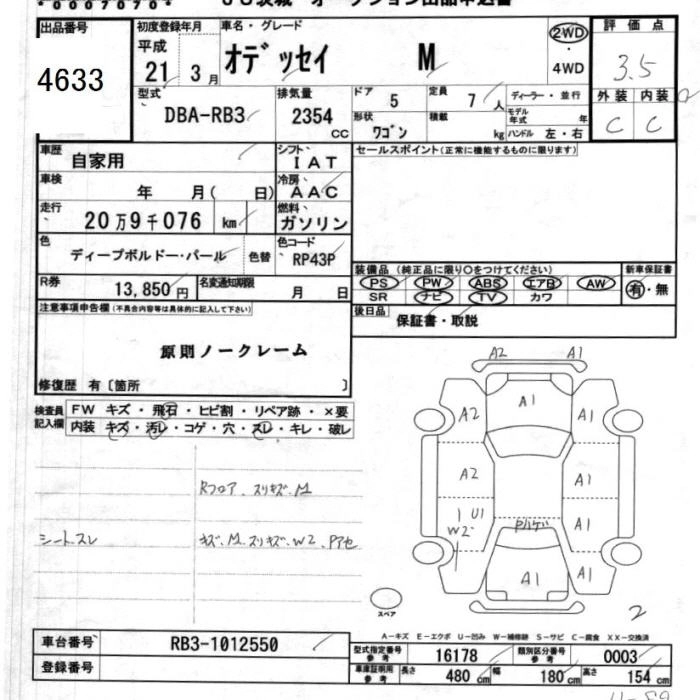 *00070704*
出品番号 初度登録年月 車名・グレード 評価点
4633 平成 21 3月 オデッセイ M 2WD・4WD 3.5
型式 排気量 ドア 定員 ディーラー・並行 外装 内装
DBA-RB3 2354 CC 5 7人 モデル年式 年 C C
形状 ワゴン 積載 kg ハンドル 左・右
車歴 自家用 シフト IAT セールスポイント(正常に機能するものに限ります)
車検 年 月( 日) 冷房 AAC
走行 20万9千076 km 燃料 ガソリン
色 ディープボルドー・パール 色替 色コード RP43P
装備品 (純正品に限り○をつけてください) 新車保証書
R券 13,850円 名変通知期限 月 日 PS PW ABS エアB AW 有・無
SR ナビ TV カワ
注意事項申告欄(不具合内容等は具体的に記入して下さい) 後日品 保証書・取説
原則ノークレーム
修復歴 有〔箇所 〕
検査員記入欄 FW キズ・飛石・ヒビ割・リペア跡・×要
内装 キズ・汚レ・コゲ・穴・スレ・キレ・破レ
A2 A1
A1
A2 A1
A2 A1
U1 A1
W2
A1 A1
Rフロア、スリキズ、M
シートスレ キズ、M、スリキズ、W2、Pアセ
スペア 2
A-キズ E-エクボ U-凹み W-補修跡 S-サビ C-腐食 XX-交換済
車台番号 RB3-1012550 型式指定番号 参考 16178 類別区分番号 参考 0003
登録番号 車庫証明用 参考 長さ 480 cm 幅 180 cm 高さ 154 cm